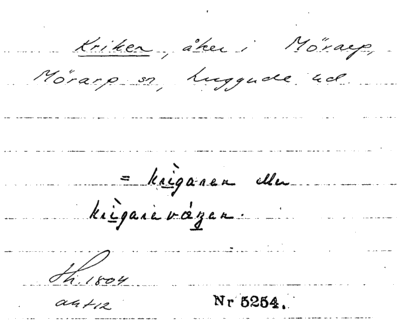 Kriken, åker i Mörarp,
Mörarp sn, Luggude hd
= krìgaren eller
krìgarevä́gen.
Sk. 1804
akt 12
Nr 5254.